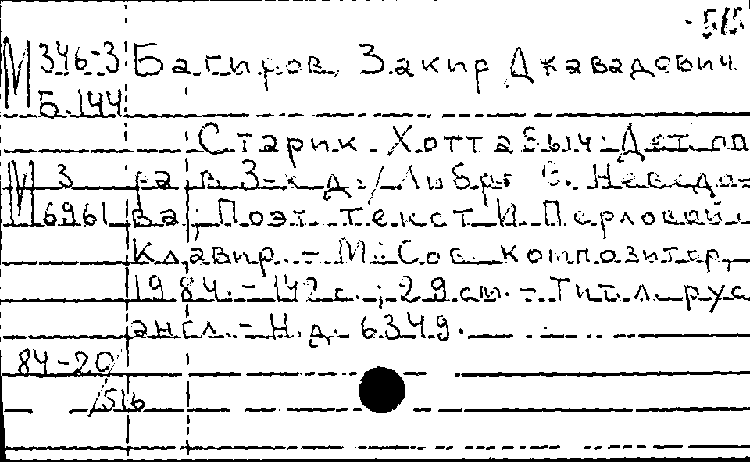 515
М 346-3 Багиров, Закир Джавадович
Б.144
Старик Хоттабыч: Дет. оп
М 3 ра в 3-х д. / Либр. С. Неведо-
6961 ва; Поэт. текст И. Перловой.
Клавир. - М.: Сов. композитор,
1984. - 142 с.; 29 см. - Тит. л. рус
англ. - Н.д. 6349.
84-20/516